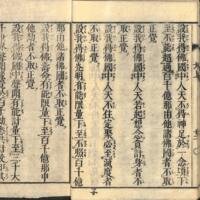 設我得佛國中人天不得神足於一念頃下
至不能超過百千億那由他諸佛國者不
取正覺
設我得佛國中人天若起想念貪計身者不
取正覺
設我得佛國中人天不住定聚必至滅度者
不取正覺
設我得佛光明有能限量下至不照百千億
那由他諸佛國者不取正覺
設我得佛壽命有能限量下至百千億那由
他劫者不取正覺
設我得佛國中聲聞有能計量下至三千大